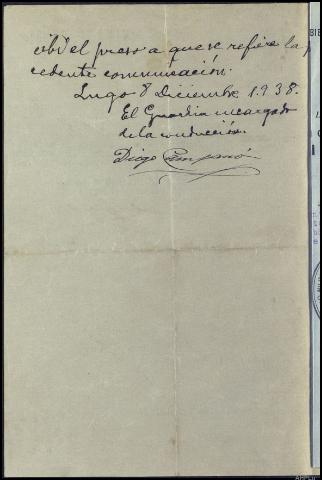 el preso a que se refiere la
cedente comunicación.
Lugo 8 Diciembre 1.938.
El Guardia encargado
de la conducción.
Diego